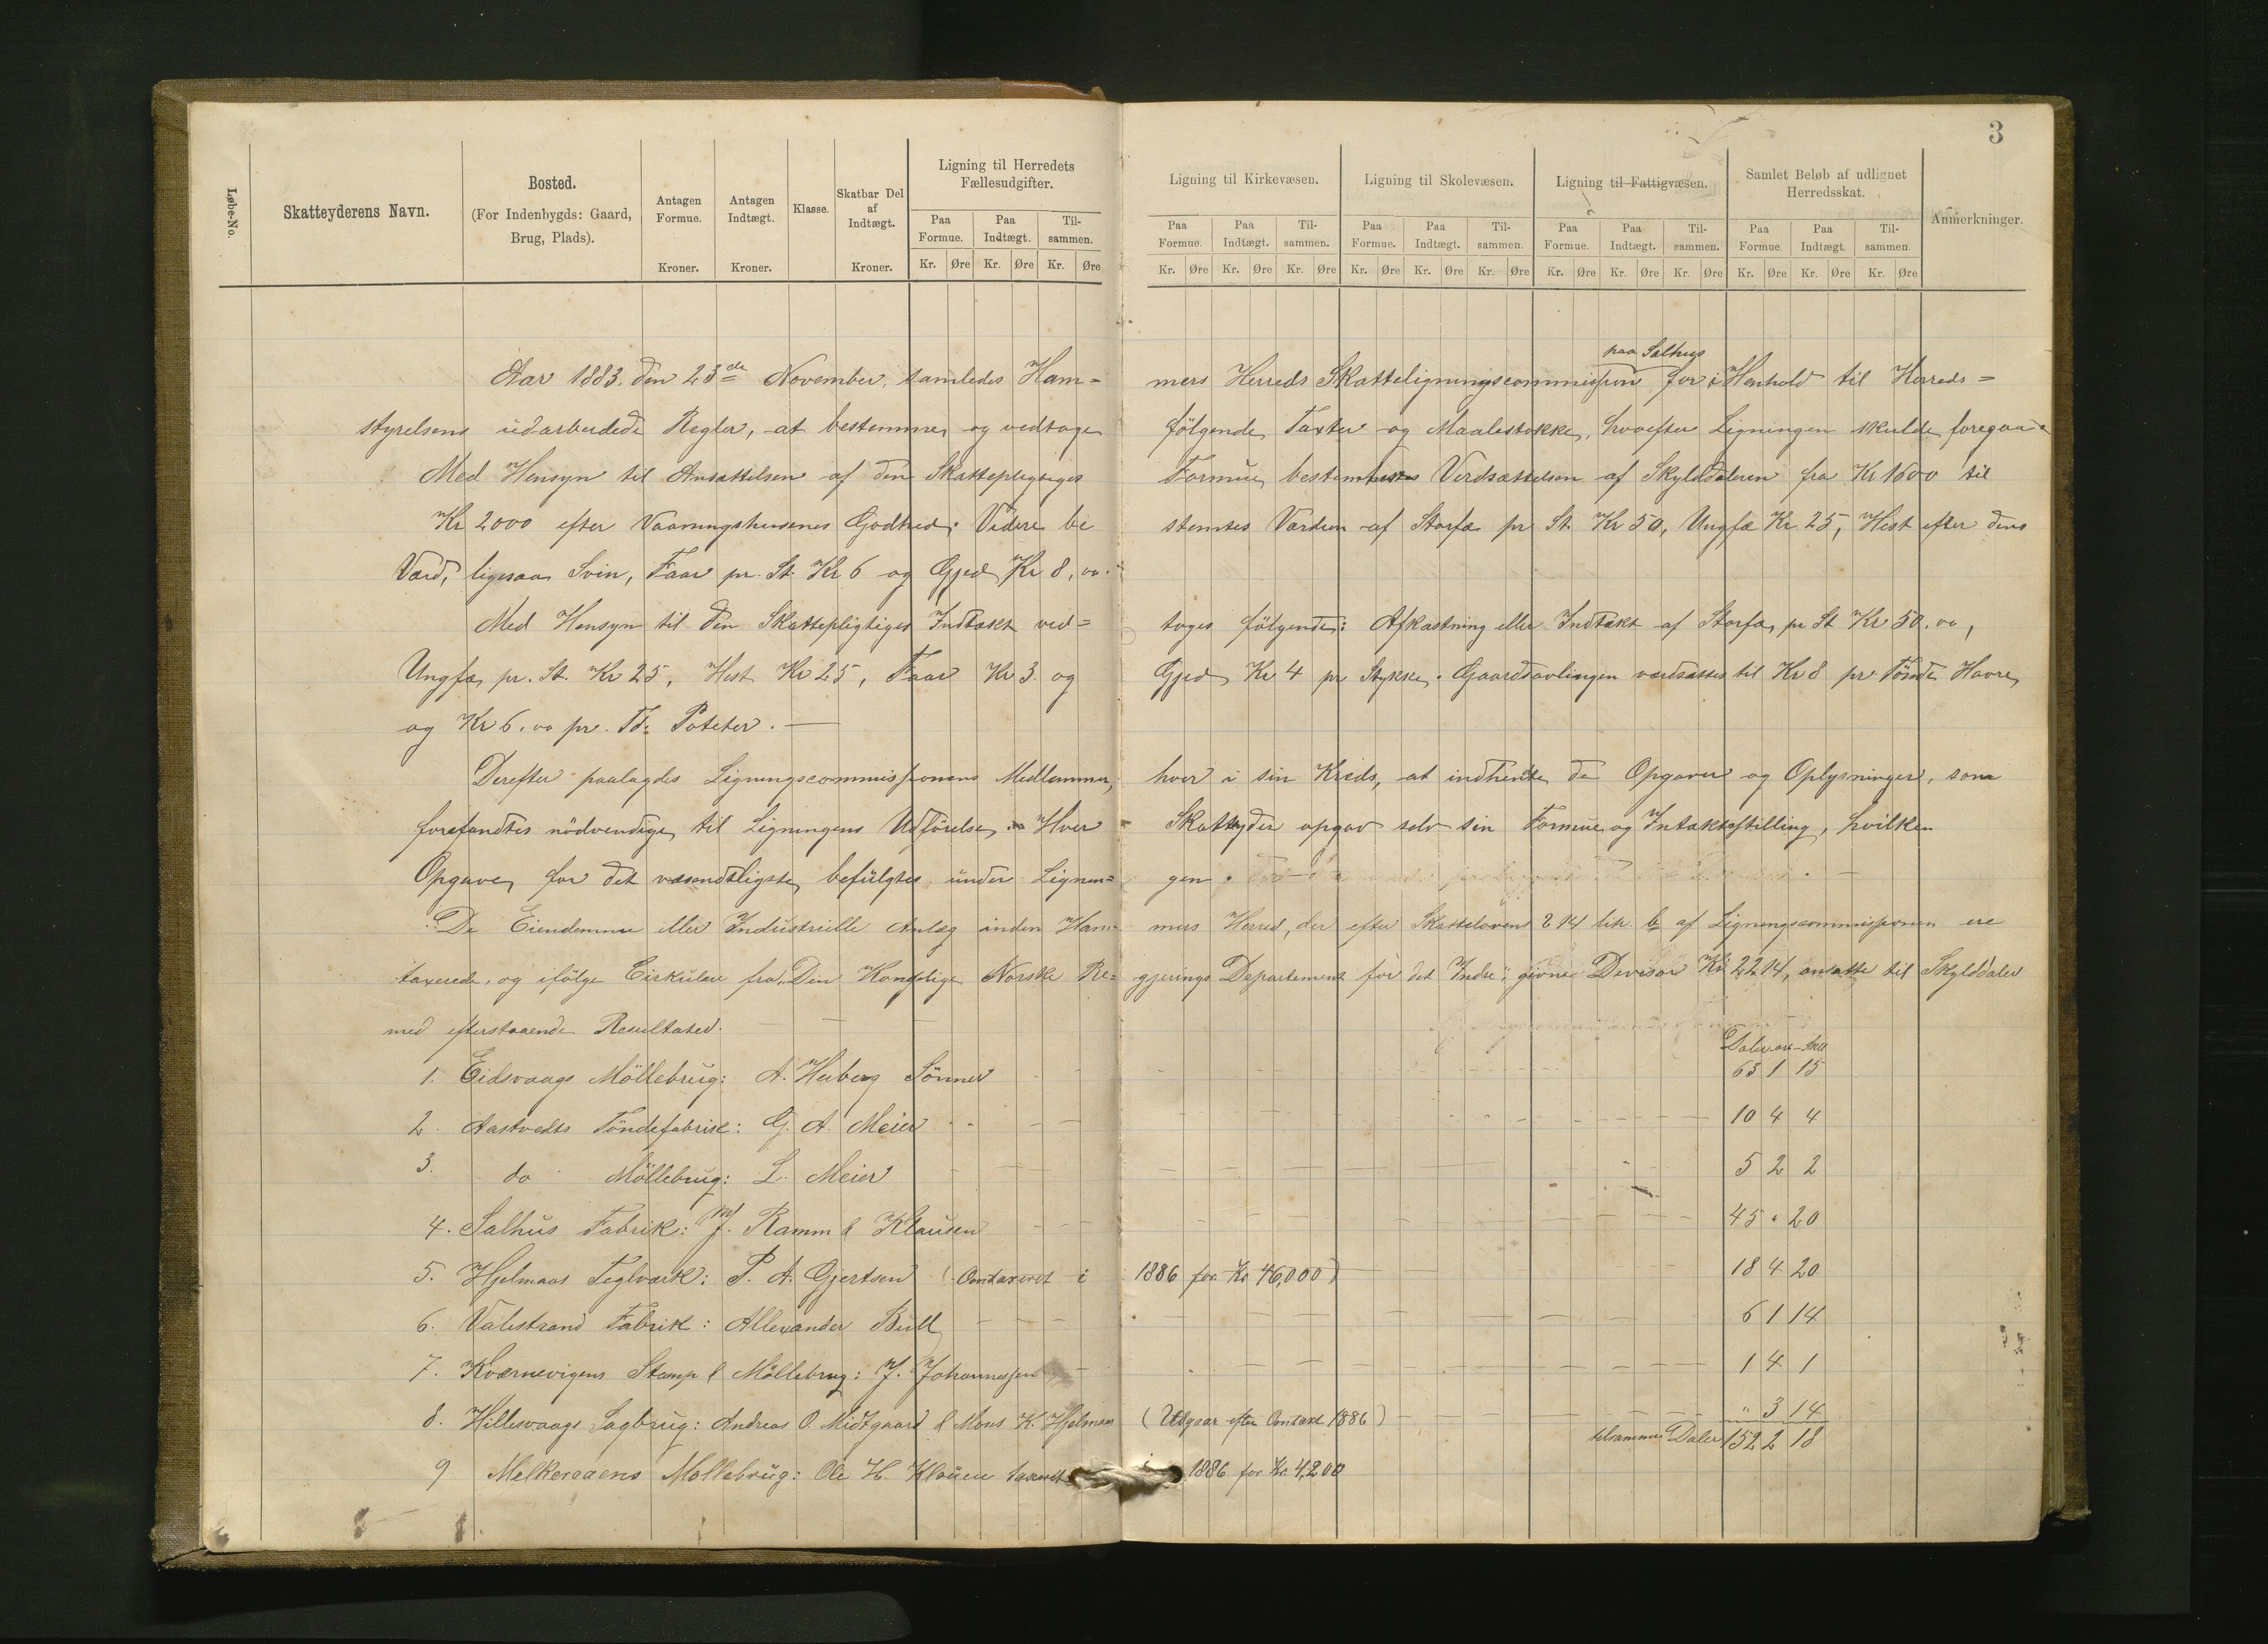 3
Løbe-No.
Skatteyderens Navn.
Bosted.
(For Indenbygds: Gaard,
Brug, Plads).
Antagen
Formue.
Kroner.
Antagen
Indtægt.
Kroner.
Klasse.
Skatbar Del
af
Indtægt.
Kroner.
Ligning til Herredets
Fællesudgifter.
Paa Formue. Paa Indtægt. Til-sammen.
Kr. Øre Kr. Øre Kr. Øre
Ligning til Kirkevæsen.
Paa Formue. Paa Indtægt. Til-sammen.
Kr. Øre Kr. Øre Kr. Øre
Ligning til Skolevæsen.
Paa Formue. Paa Indtægt. Til-sammen.
Kr. Øre Kr. Øre Kr. Øre
Ligning til Fattigvæsen.
Paa Formue. Paa Indtægt. Til-sammen.
Kr. Øre Kr. Øre Kr. Øre
Samlet Beløb af udlignet
Herredsskat.
Paa Formue. Paa Indtægt. Til-sammen.
Kr. Øre Kr. Øre Kr. Øre
Anmerkninger.
paa Salhus
Aar 1883. den 23de November, samledes Ham= mers Herreds Skatteligningscommission for i Henhold til Herreds=
styrelsens udarbeidede Regler, at bestemme og vedtage følgende Taxter og Maalestokke, hvoefter Ligningen skulde foregaa
Med Hensyn til Ansættelsen af den Skattepligtiges Formue, bestemtes Værdsættelsen af Skylddaleren fra Kr 1600 til
Kr 2000 efter Vaaningshusenes Godhed; Videre be stemtes Værdien af Storfæ pr St. Kr 50, Ungfæ Kr 25, Hest efter dens
Værd, ligesaa Svin, Faar pr. St. Kr 6 og Gjed Kr 8, oo.
Med Hensyn til den Skattepligtiges Indtækt ved= toges følgende: Afkastning eller Indtækt af Storfæ, pr St Kr 50. oo,
Ungfæ, pr. St. Kr 25, Hest Kr 25, Faar Kr 3. og Gjed Kr 4 pr Stykke. Gaardsavlingen værdsattes til Kr 8 pr Tönde Havre,
og Kr 6. oo pr. Td. Poteter. —
Derefter paalagdes Ligningscommissionens Medlemmer, hver i sin Kreds, at indhente de Opgaver og Oplysninger, som
forefandtes nödvendige til Ligningens Udförelse. Hver Skatteyder opgav selv sin Formue og Intæktsstilling, hvilken
Opgave, for det væsendtligste, befülgtes under Lignin= gen.
De Eiendomme eller Industrielle Anlæg inden Ham= mers Herred, der efter Skattelovens § 14 litr. b af Ligningscommissionen ere
taxerede, og ifölge Cirkulære fra "Den Kongelige Norske Re= gjerings Departement for det Indre", givne Devisor Kr 2214, ansatte til Skylddaler
med efterstaaende Resultater.
Daler ort Skill
1. Eidsvaags Möllebrug: A. Huberg Sönner 63 1 15
2. Aastvedts Töndefabrik: G. A. Meier 10 4 4
3. do Möllebrug: L. Meier 5 2 2
4. Salhus Fabrik: J. Ramm & Klausen 45 " 20
5. Hjelmaas Teglværk: P. A. Gjertsen (Omtaxeret i 1886 for Kr 46,000) 18 4 20
6. Valestrand Fabrik: Allexander Bull 6 1 14
7. Kværnevigens Stamp & Möllebrug: J. Johannessen 1 4 1
8. Hillesvaags Sagbrug: Andreas O. Midtgaard & Mons K. Hjelmaas (Udgaar efter Omtaxt 1886) " 3 14
tilsammen Daler 152 2 18
9 Melkeraaens Mollebrug: Ole H. Klauen taxeret i 1886 for Kr. 4,200